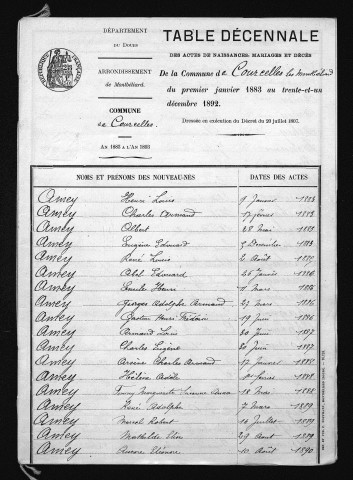 DÉPARTEMENT
du Doubs
ARRONDISSEMENT
de Montbéliard.
COMMUNE
de Courcelles
AN 1883 A L'AN 1893
TABLE DÉCENNALE
DES ACTES DE NAISSANCES, MARIAGES ET DÉCÈS
De la Commune de Courcelles les Montbéliard
du premier janvier 1883 au trente-et-un
décembre 1892.
Dressée en exécution du Décret du 20 juillet 1807.
NOMS ET PRÉNOMS DES NOUVEAU-NÉS DATES DES ACTES
Amey Henri Louis 9 Janvier 1883
Amey Charles Armand 17 février 1883
Amey Albert 28 Mai 1883
Amey Eugène Edouard 5 Décembre 1883
Amey René Louis 2 Août
Amey Abel Edouard 26 Janvier 1886
Amey Emile Henri 11 Mars 1886
Amey Georges Adolphe Armand 27 Mars 1886
Amey Gaston Henri Frédéric 19 Juin 1886
Amey Armand Louis 20 Juin 1887
Amey Charles Eugène 20 Juin 1887
Amey Charles Armand 17 Janvier 1888
Amey Hélène Adèle 1er février 1888
Amey Fanny Marguerite 18 Mai 1888
Amey René Adolphe 7 Mars 1889
Amey Marcel Robert 14 Juillet 1889
Amey Mathilde Elise 29 Août 1889
Amey Aurore Eléonore 10 Août 1890